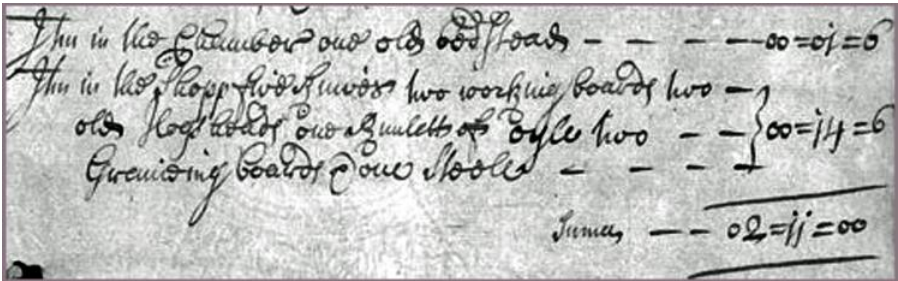 Itm in the Chamber one old bedstead – – – – 00=01=6
Itm in the Shopp five knives two working boards two –
old hogsheads one Runlett of oyle two – – 00=14=6
Graineing boards & one steele – – – –
Suma – – 02=11=00